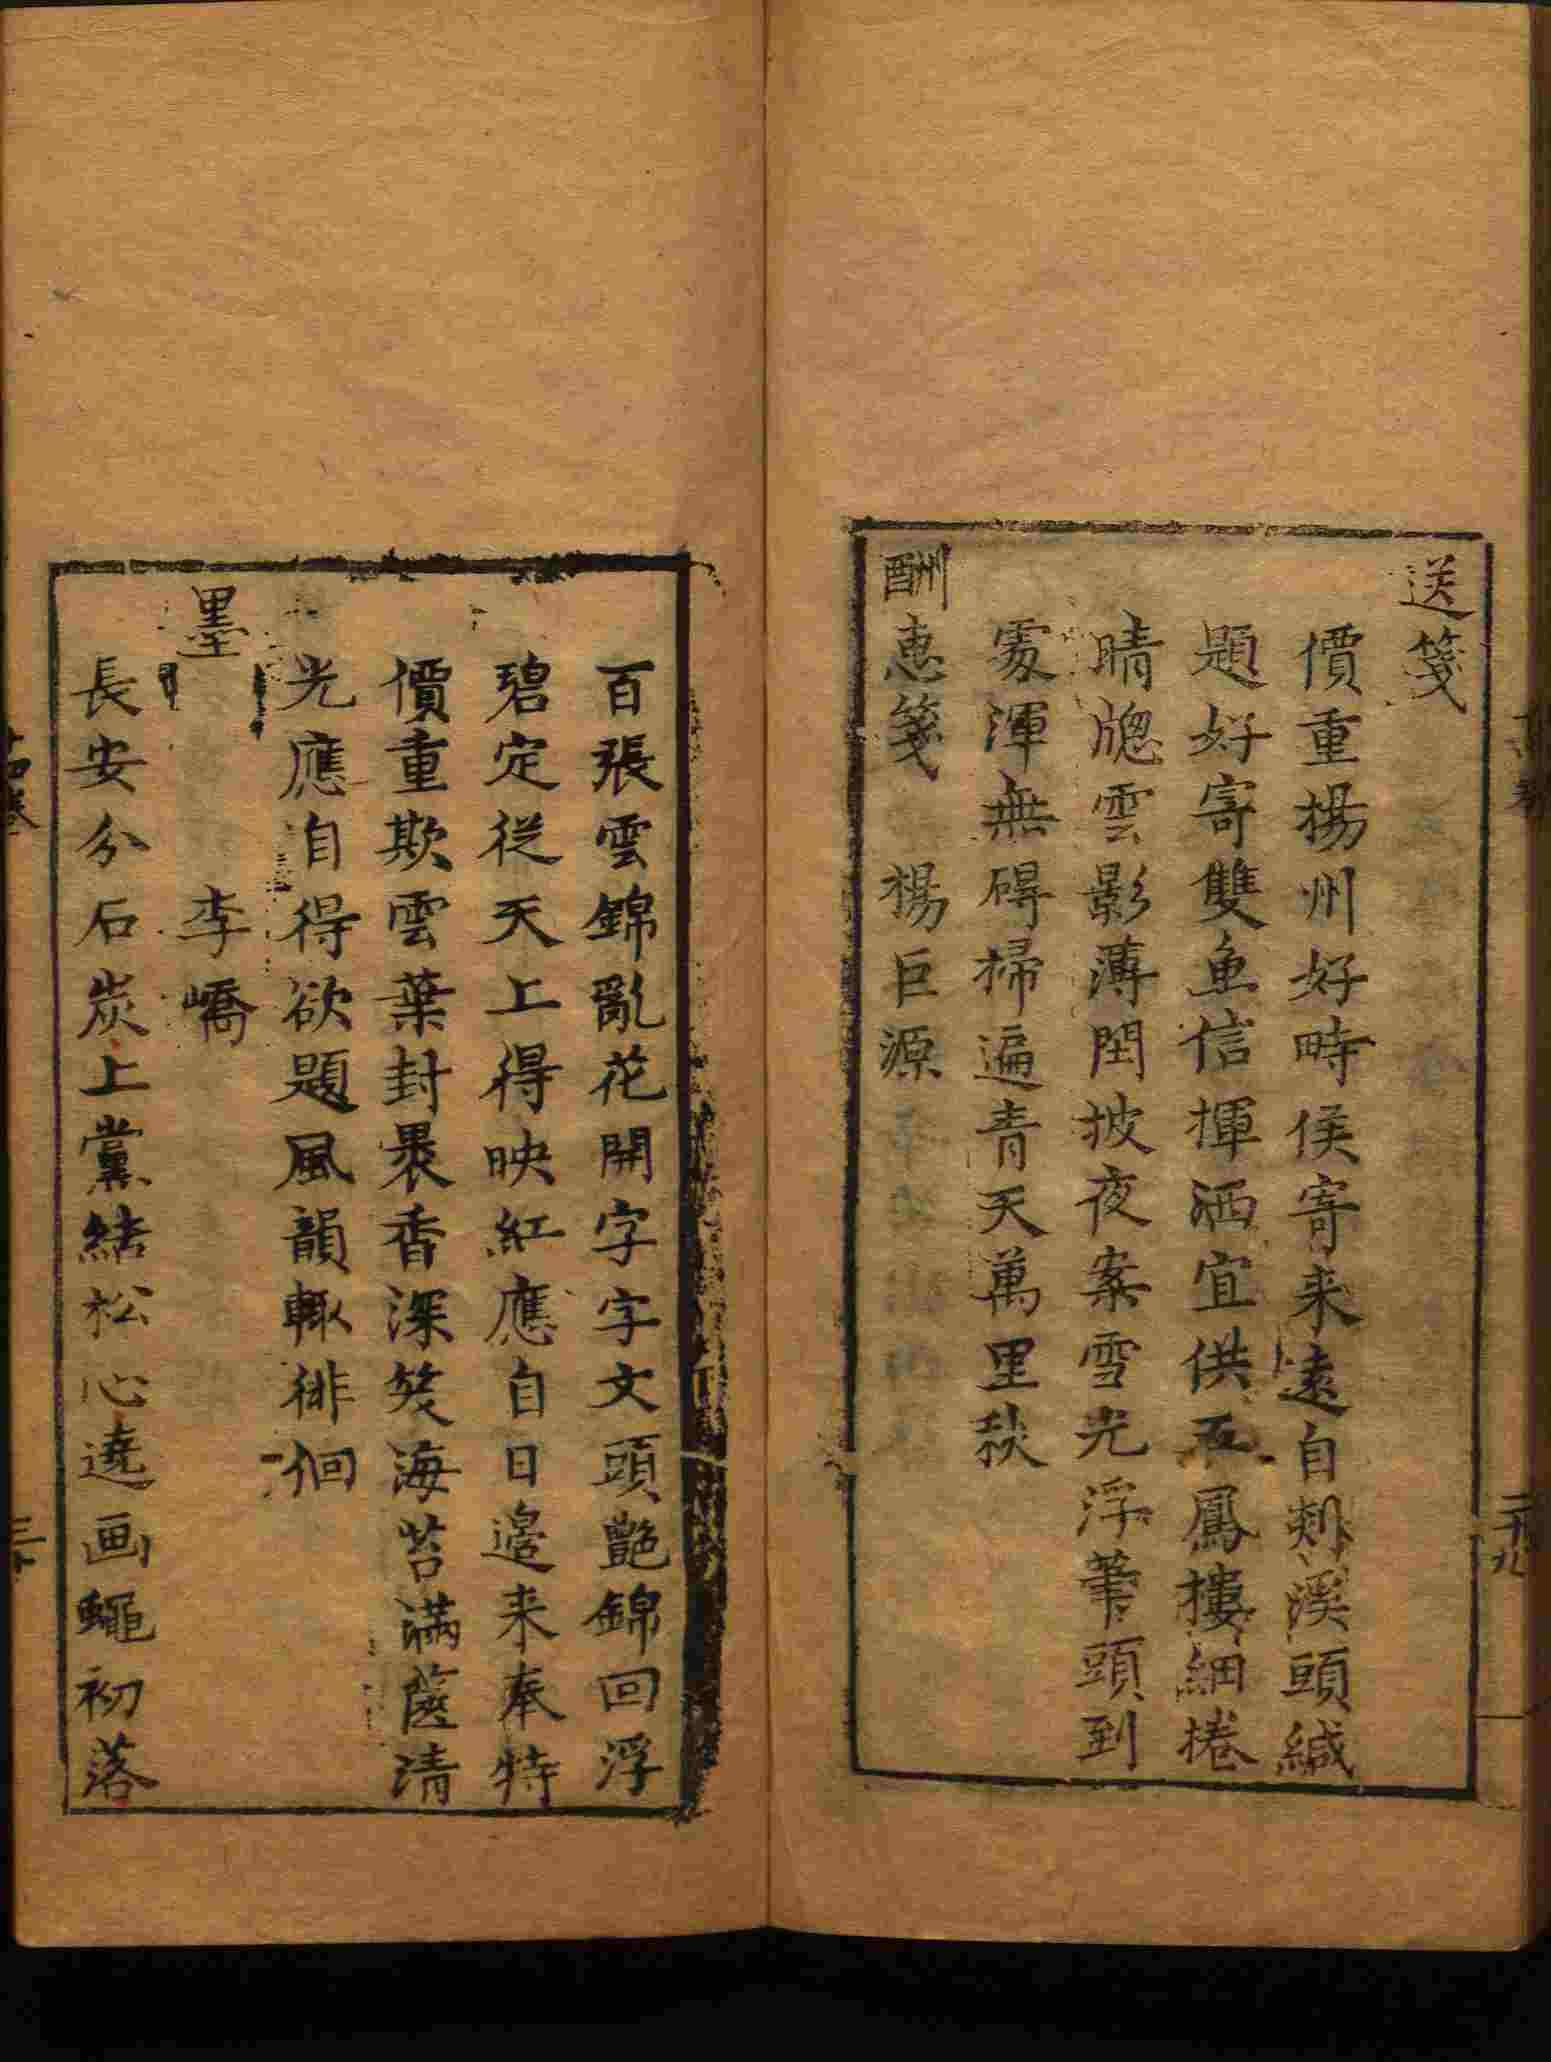 送箋
價重揚州好時侯寄来遠自剡溪頭緘
題好寄雙魚信揮洒宜供五鳳摟細捲
晴牕雲影薄閏披夜案雪光浮筆頭到
處渾無碍掃遍青天萬里秋
酬惠箋 楊巨源
二十九
百張雲錦亂花開字字文頭艶錦回浮
碧定從天上得映紅應自日邉来奉特
價重欺雲葉封裹香深笑海苔滿篋清
光應自得欲題風韻輙徘徊
墨
李嶠
長安分石炭上黨結松心遶画蠅初落
十四卷
三十